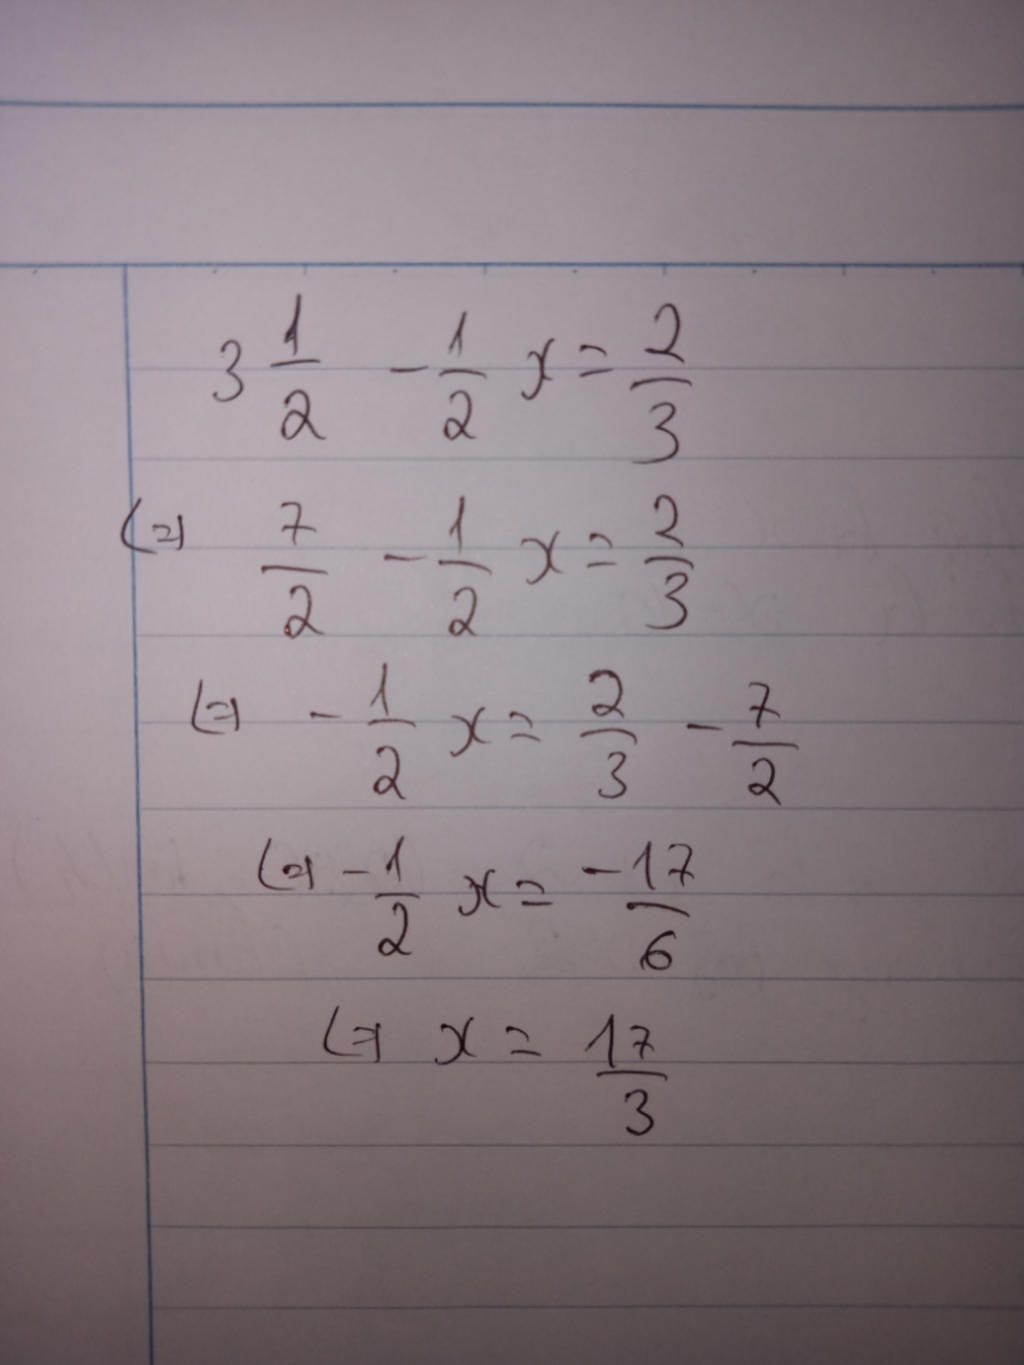 3 1/2 - 1/2 x = 2/3
(=) 7/2 - 1/2 x = 2/3
(=) - 1/2 x = 2/3 - 7/2
(=) - 1/2 x = -17/6
(=) x = 17/3